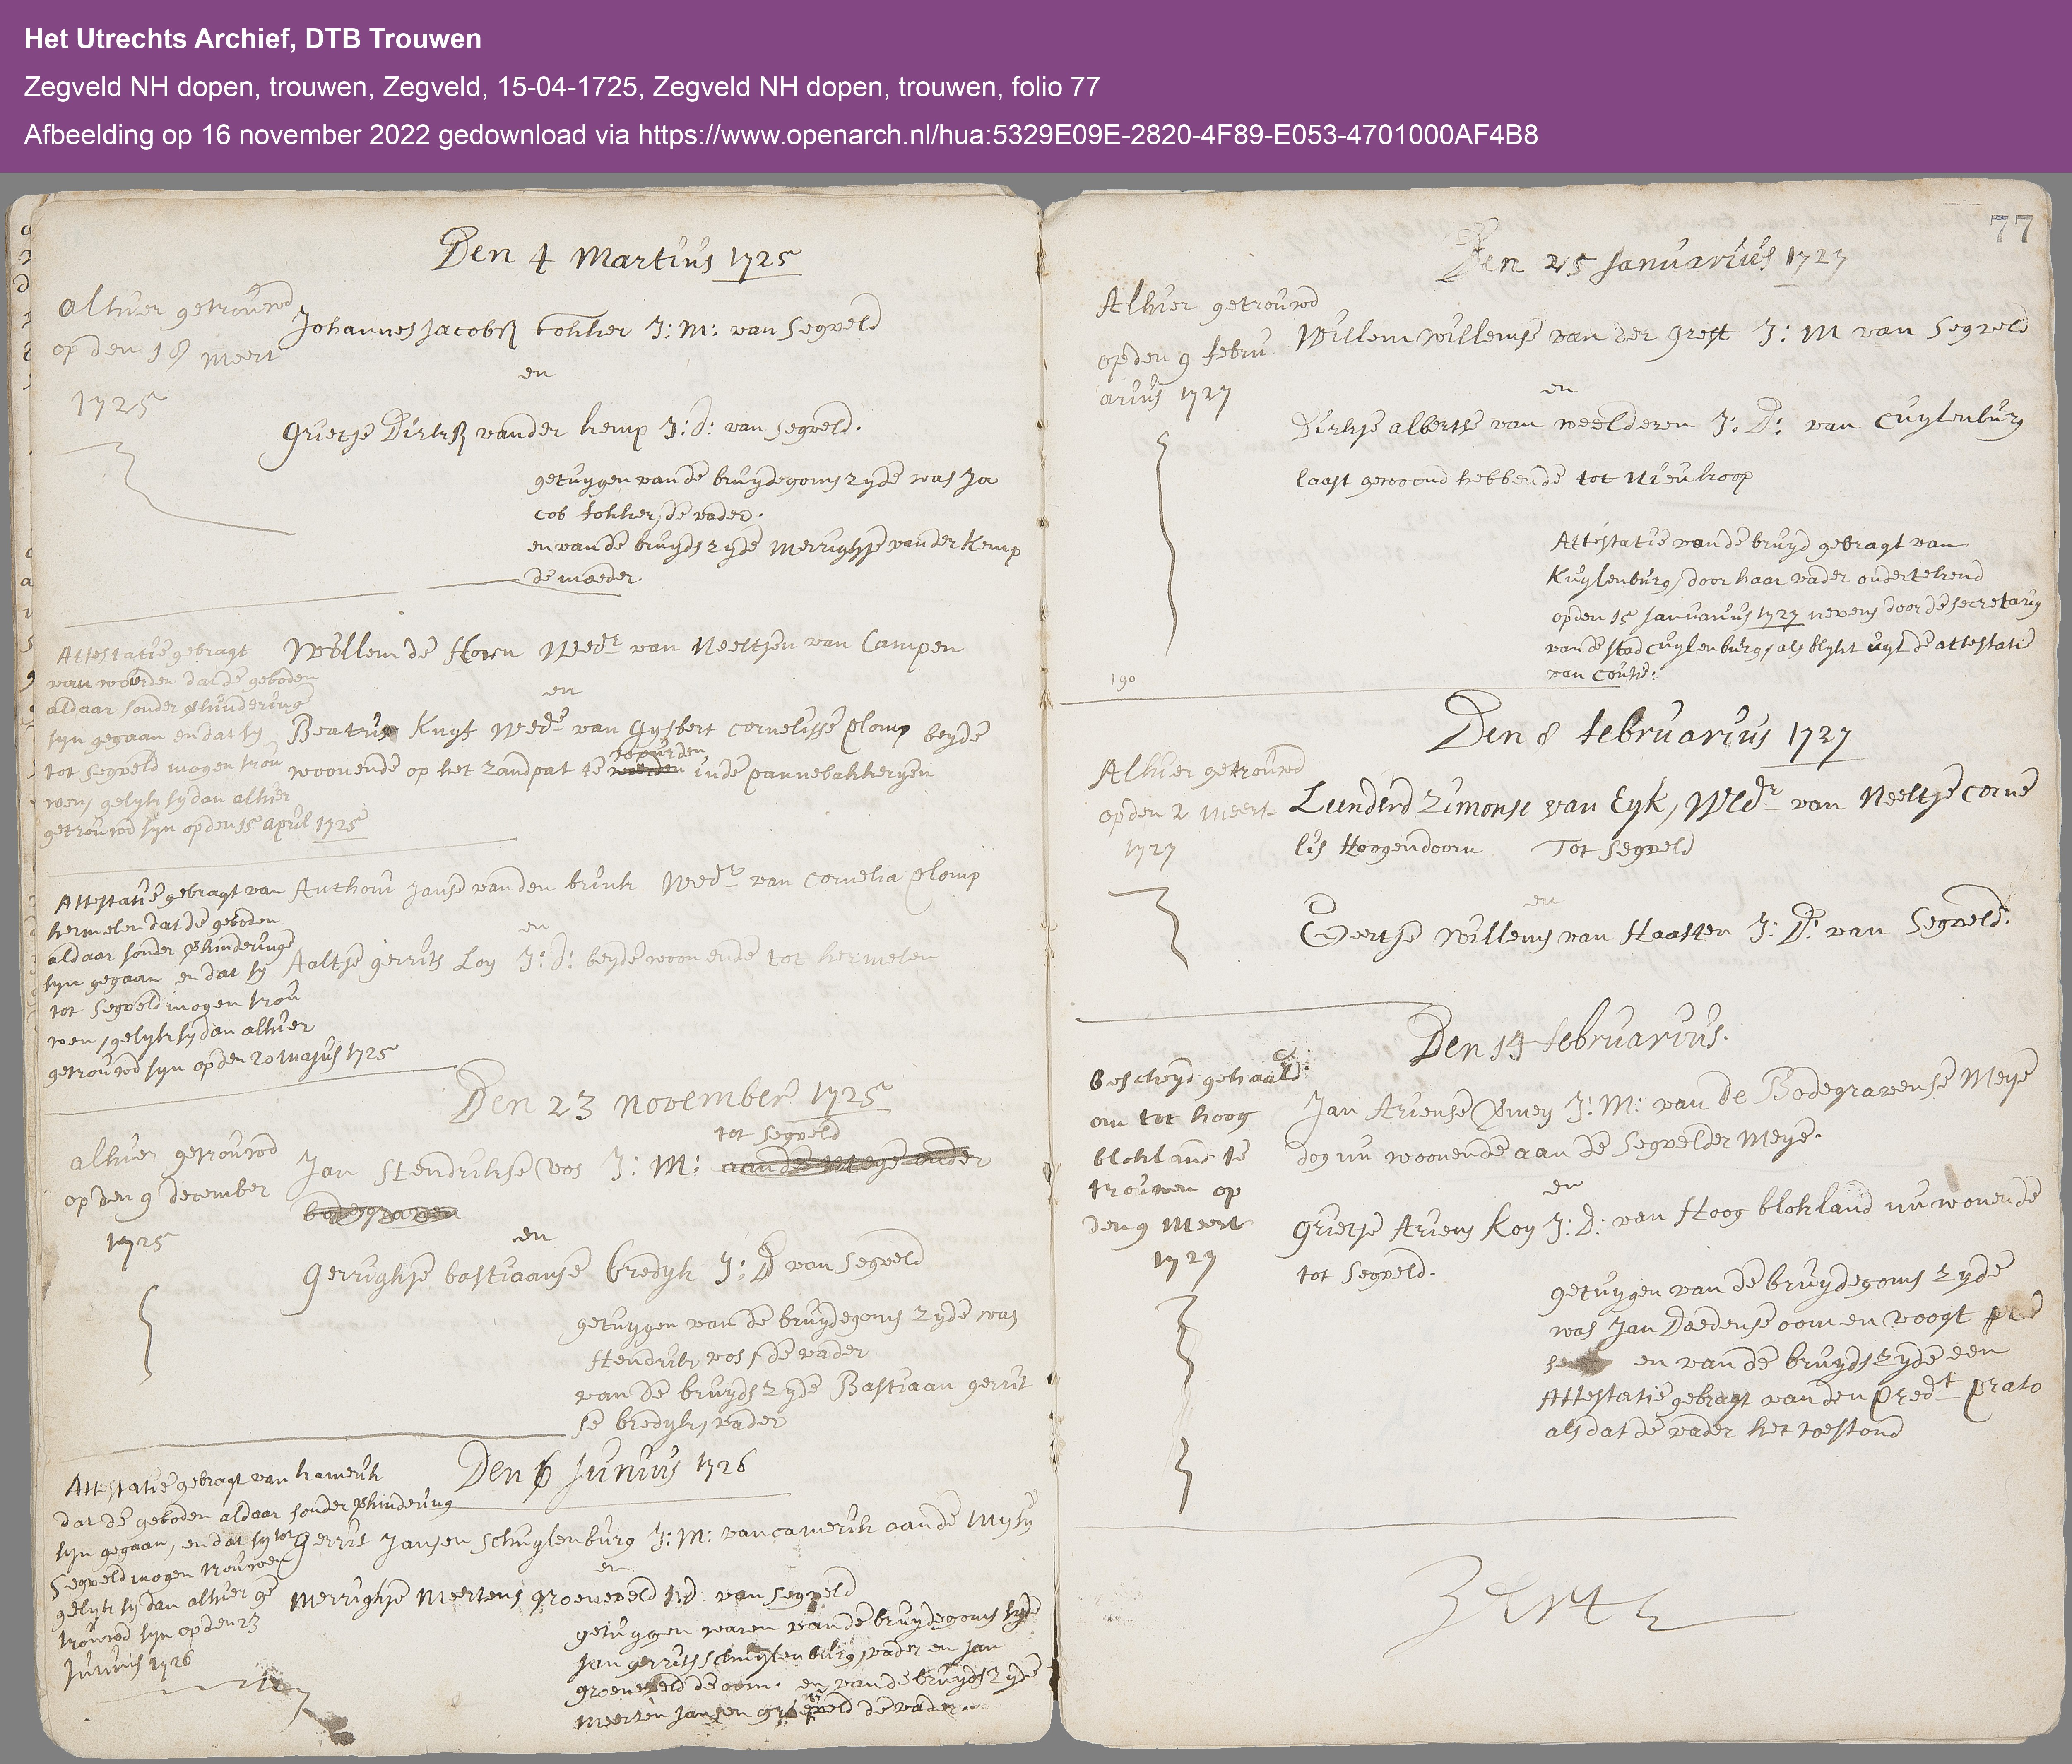 Het Utrechts Archief, DTB Trouwen
Zegveld NH dopen, trouwen, Zegveld, 15-04-1725, Zegveld NH dopen, trouwen, folio 77
Afbeelding op 16 november 2022 gedownload via https://www.openarch.nl/hua:5329E09E-2820-4F89-E053-4701000AF4B8
Den 4 Martius 1725
alhier getrouwd
op den 18 meert
1725
Johannes Jacobsz tokker J: M: van Segveld
en
Grietje Dirksz vander kemp J: D: van Segveld.
getuygen van de bruydegoms zyde was Ja
cob tokker, de vader.
en van de bruyds zyde Merrighje vander Kemp
de moeder.
Attestatie gebragt
van woerden dat de geboden
aldaar sonder verhinderinge
syn gegaan en dat sy
tot Segveld mogen trou
wen, gelyk sy dan alhier
getrouwd syn op den 15 april 1725
Willem de Horn Wedr van Neeltjen van Campen
en
Beatrix Kuyf Wede van Gysbert Cornelisse Plomp beyde
woonende op het zandpat te woerden in de pannebakkeryen
Attestatie gebragt van
hermelen dat de geboden
aldaar sonder verhinderinge
syn gegaan en dat sy
tot Segveld mogen trou
wen, gelyk sy dan alhier
getrouwd syn op den 20 majus 1725
Anthoni Janse van den brink Wedr van Cornelia Plomp
en
Aaltje gerrits Loy J: D: beyde woonende tot hermelen
Den 23 november 1725
alhier getrouwd
op den 9 december
1725
tot Segveld
Jan Hendrikse Vos J: M: aan de Meye onder
bodegraven
en
Gerrighje bastiaanse bredyk J: D van Segveld
getuygen van de bruydegoms zyde was
Hendrik vos, de vader
van de bruyds zyde Bastiaan gerrit
se bredyk, vader
Den 6 Junius 1726
Attestatie gebragt van kamerik
dat de geboden aldaar sonder verhindering
syn gegaan, en dat sy tot
Segveld mogen trouwen
gelyk sy dan alhier ge
trouwd syn op den 23
Junius 1726
Gerrit Jansen Schuylenburg J: M: van camerik aan de Mysy
en
Merrighje Meertens groeneveld J: D: van Segveld
getuygen waren van de bruydegoms syde
Jan gerrits Schuylenburg, vader en Jan
groeneveld de oom. en van de bruyds zyde
Meerten Jansen groeneveld de vader
77
Den 25 Januarius 1727
Alhier getrouwd
op den 9 febru
arius 1727
Willem Willemse van der Grest J: M van Segveld
en
Dirkje alberts van weelderen J: D: van Cuylenburg
laast gewoond hebbende tot Nieukoop
Attestatie van de bruyd gebragt van
Kuylenburg, door haar vader ondertekend
op den 15 Januarius 1727 nevens door de secretaris
van de stad Cuylenburg, als blykt uyt de attestatie
190
Den 8 februarius 1727
Alhier getrouwd
op den 2 meert
1727
Leenderd Zimonse van Eyk, Wedr van Neeltje Corne
lis Hoogendoorn Tot Segveld
en
Eertje Willems van Haasten J: D: van Segveld.
Den 14 februarius.
bescheyd gehaald
om tot hoog
blokland te
trouwen op
den 9 Meert
1727
Jan Ariense J: M: van de Bodegravense Meye
dog nu woonende aan de Segvelder Meye.
en
Grietje Ariens Koy J: D: van Hoog blokland nu wonende
tot Segveld.
getuygen van de bruydegoms zyde
was Jan Daedense oom en voogt
en van de bruyds zyde een
Attestatie gebragt van den Predt Prato
als dat de vader het toestond